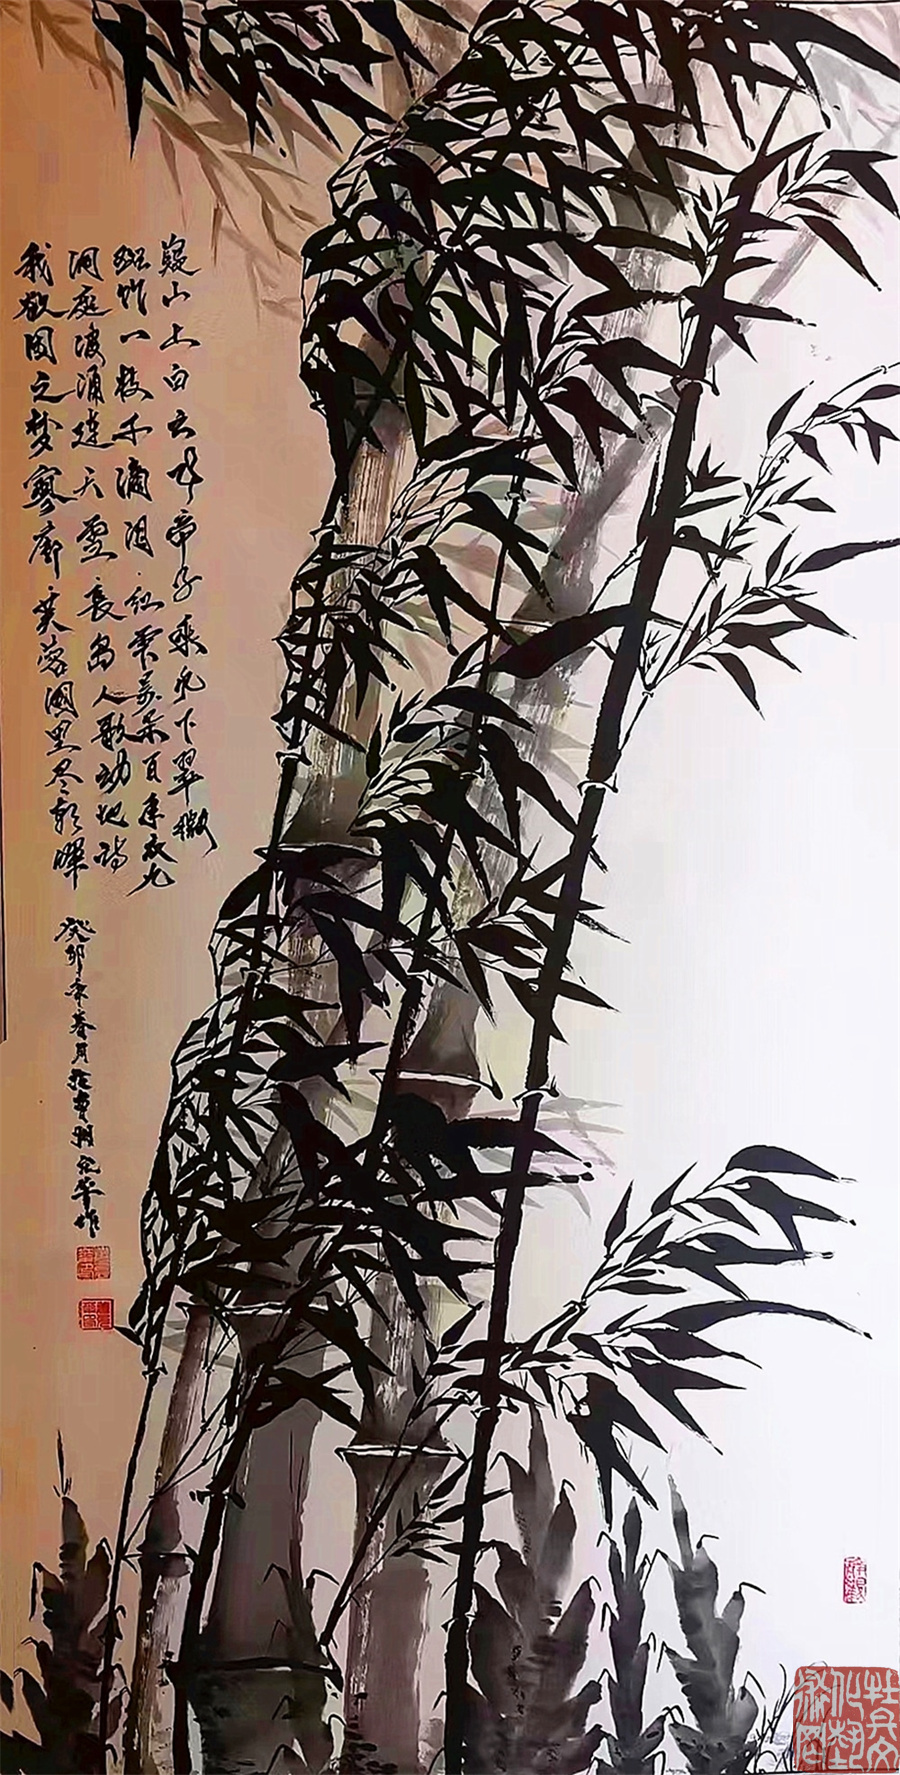 嶷山上白云飞帝子乘风下翠微
斑竹一枝千滴泪红霞万朵百重衣九
洞庭波涌連天雪長岛人歌动地诗
我欲因之梦寥廓芙蓉國里尽朝晖
癸卯年春月於
作